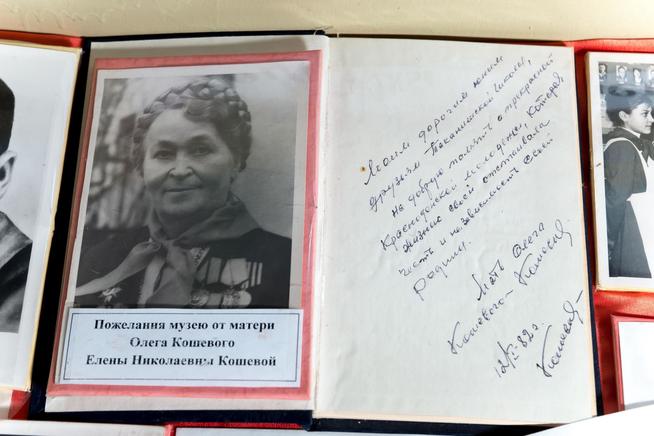 Пожелания музею от матери
Олега Кошевого
Елены Николаевны Кошевой
Моим дорогим юным
друзьям Теканишской школы,
на добрую память о прекрасной
Краснодонской молодежи, которая
жизнью своей отстаивала
честь и независимость своей
родины.
Мать Олега
Кошевого – Кошевая
Кошевая